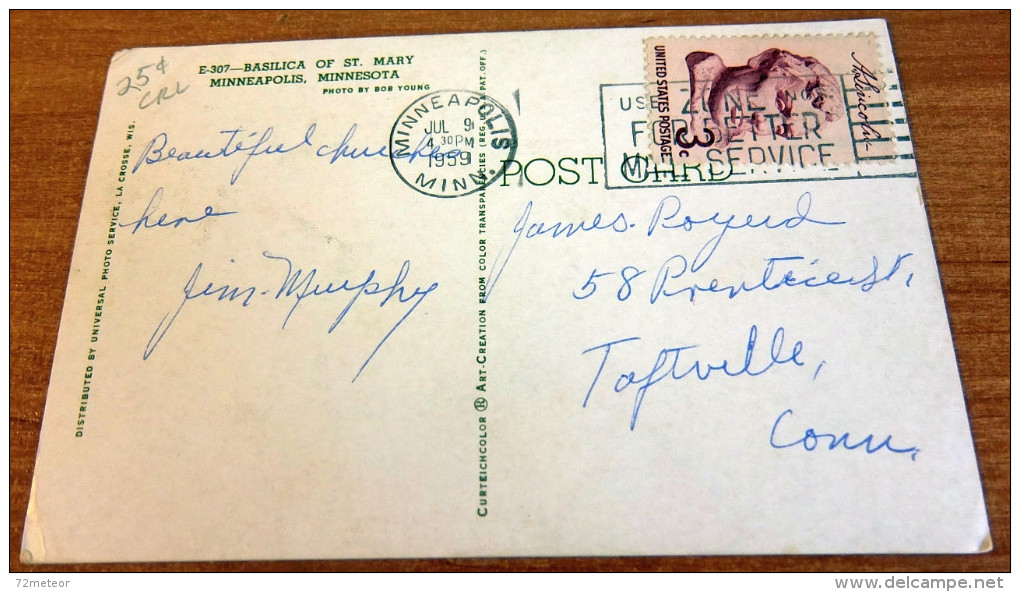 25¢
CRL
E-307—BASILICA OF ST. MARY
MINNEAPOLIS, MINNESOTA
PHOTO BY BOB YOUNG
Beautiful churches
here
Jim Murphy
DISTRIBUTED BY UNIVERSAL PHOTO SERVICE, LA CROSSE, WIS.
CURTEICHCOLOR ® ART-CREATION FROM COLOR TRANSPARENCIES (REG. U.S.A. PAT. OFF.)
MINNEAPOLIS
JUL 9
4 30 PM
1959
MINN.
UNITED STATES POSTAGE
3c
A. Lincoln
USE ZONE NOS.
FOR BETTER
MAIL SERVICE
POST CARD
James
58 Prentice St,
Taftville,
Conn.
72meteor
delcampe.net